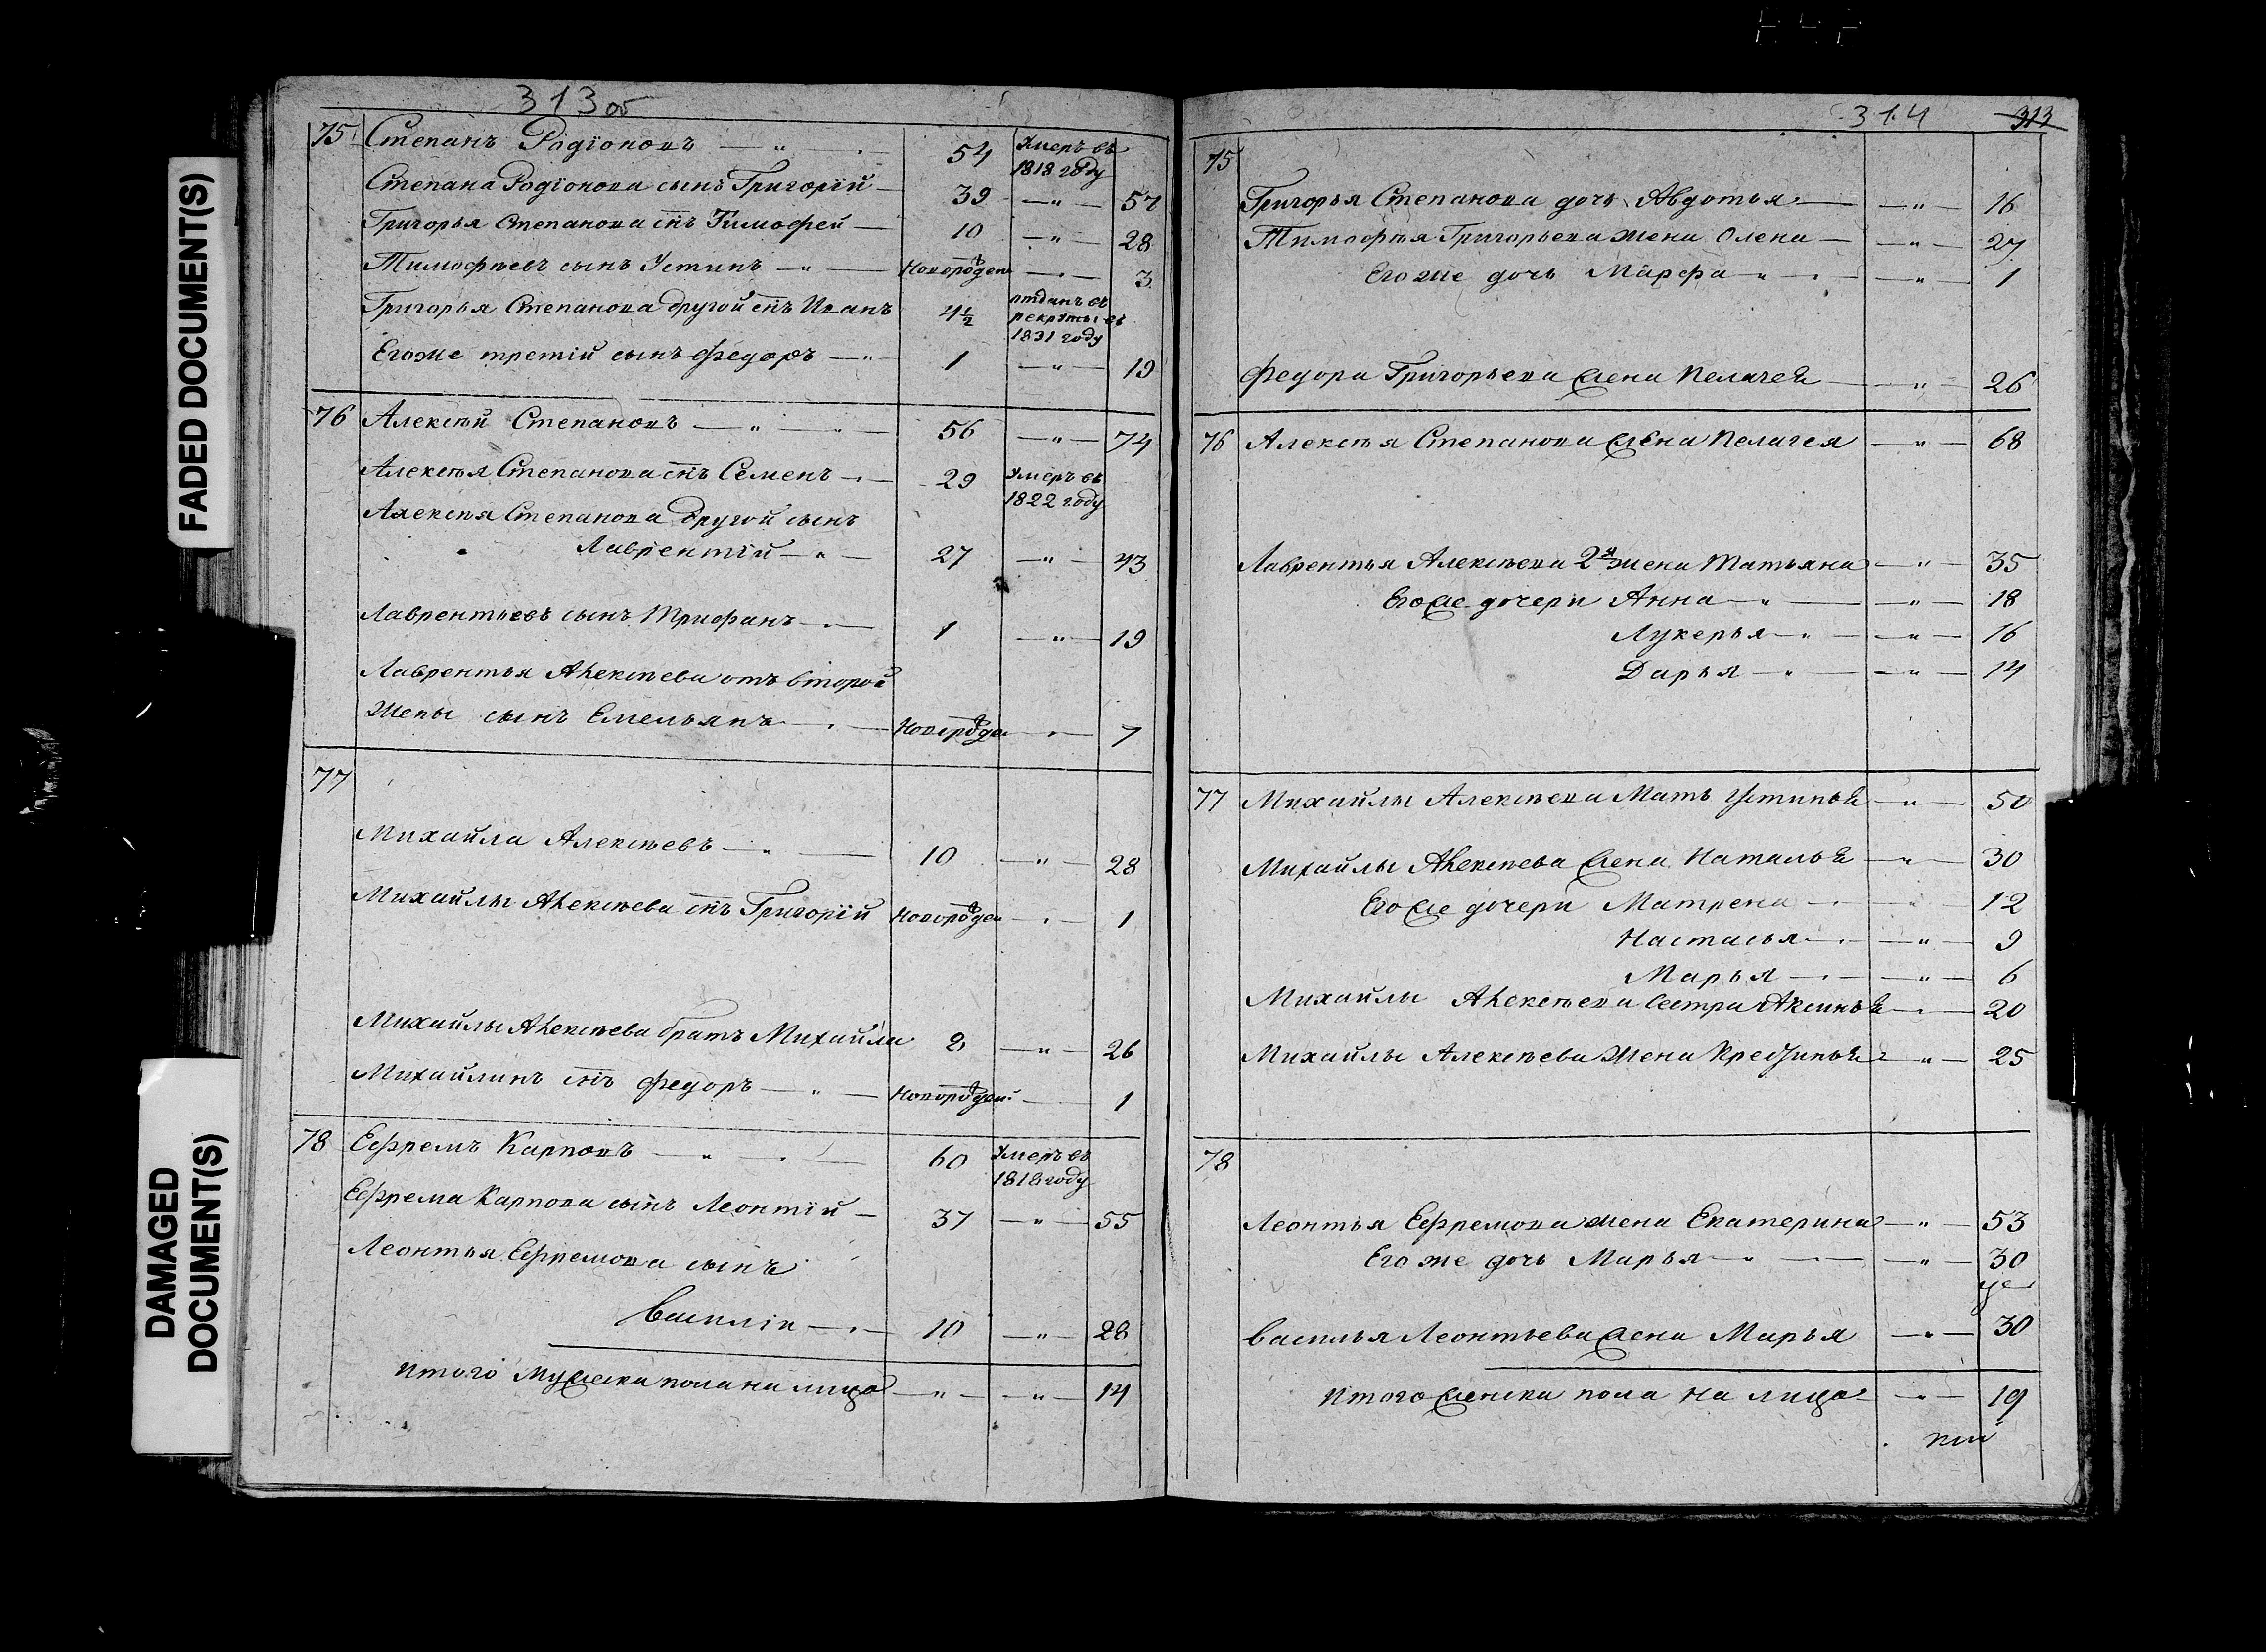 FADED DOCUMENT(S)
DAMAGED DOCUMENT(S)
313об
75 Степанъ Родіоновъ — „ — 54 Умеръ въ
1818 году
Степана Родіонова сынъ Григорій — 39 — „ — 57
Григорья Степанова снъ Тимофей — 10 — „ — 28
Тимофѣевъ сынъ Устинъ — „ — новорожден — „ — 3
Григорья Степанова другой снъ Иванъ 4½ отданъ въ
рекруты въ
1831 году
Егоже третій сынъ Федоръ — „ — 1 — „ — 19
76 Алексѣй Степановъ — „ — „ — 56 — „ — 74
Алексѣя Степанова снъ Семенъ — „ — 29 Умеръ въ
1822 году
Алексѣя Степанова другой сынъ
Лаврентій — „ — 27 — „ — 43
Лаврентьевъ сынъ Трифанъ — „ — 1 — „ — 19
Лаврентья Алексѣева отъ второй
жены сынъ Емельянъ — „ — новорожден — „ — 7
77
Михайла Алексѣевъ — „ — 10 — „ — 28
Михайлы Алексѣева снъ Григорій новорожден — „ — 1
Михайлы Алексѣева братъ Михайла 8 — „ — 26
Михайлинъ снъ Федоръ — „ — новорожден — 1
78 Ефремъ Карповъ — „ — „ — 60 Умеръ въ
1818 году
Ефрема Карпова сынъ Леонтій — 37 — „ — 55
Леонтья Ефремова сынъ
Василіи — „ — 10 — „ — 28
Итого мужеска пола на лицо — „ — — „ — 14
314 313
75
Григорья Степанова дочь Авдотья — — „ — 16
Тимофѣя Григорьева жена Олена — — „ — 27
Его же дочь Марфа — „ — — „ — 1
Федора Григорьева жена Пелагея — — „ — 26
76 Алексѣя Степанова жена Пелагея — „ — 68
Лаврентья Алексѣева 2я жена Татьяна — „ — 35
Егоже дочери Анна — „ — — „ — 18
Лукерья — „ — — „ — 16
Дарья — „ — — „ — 14
77 Михайлы Алексѣева мать Устинья — „ — 50
Михайлы Алексѣева жена Наталья — „ — 30
Егоже дочери Матрена — „ — 12
Настасья — „ — — „ — 9
Марья — „ — — „ — 6
Михайлы Алексѣева сестра Аксинья — „ — 20
Михайлы Алексѣева жена — „ — 25
78
Леонтья Ефремова жена Екатерина — „ — 53
Его же дочь Марья — „ — — „ — 30
Василья Леонтьева жена Марья — „ — 30
Итого женска пола на лицо — „ — 19